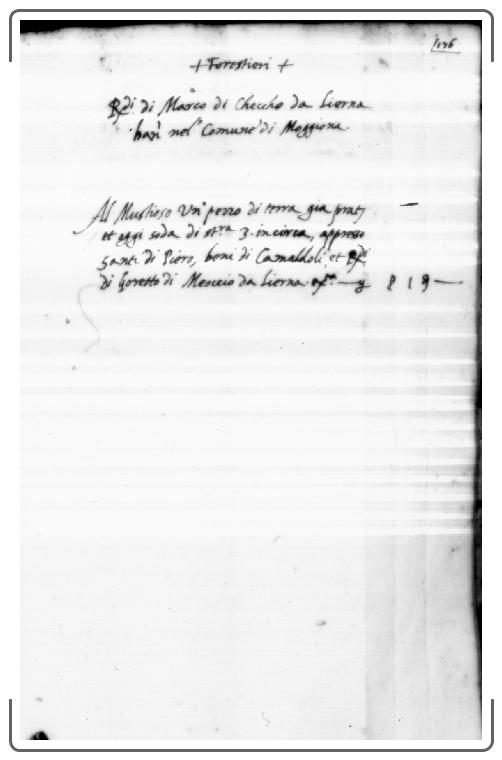 176
+ Forestieri +
Rdi. di Marco di Checcho da Lierna
nel Comune di Moggiona
Al Mustioso Un° pezzo di terra gia prati
et oggi soda di stra 3. in circa, appresso
Santi di Piero, beni di Camaldoli, et Rdi
di Goretto di Meoccio da Lierna